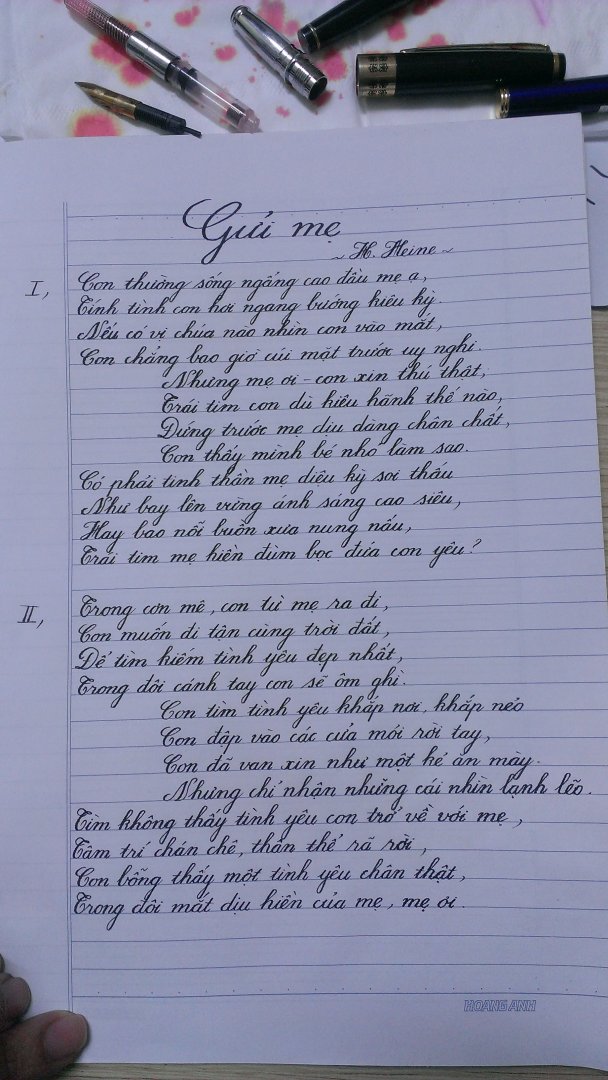 Gửi mẹ
~ H. Heine ~
I,
Con thường sống ngẩng cao đầu mẹ ạ,
Tính tình con hơi ngang bướng kiêu kỳ.
Nếu có vị chúa nào nhìn con vào mắt,
Con chẳng bao giờ cúi mặt trước uy nghi.
Nhưng mẹ ơi - con xin thú thật,
Trái tim con dù kiêu hãnh thế nào,
Đứng trước mẹ dịu dàng chân chất,
Con thấy mình bé nhỏ làm sao.
Có phải tinh thần mẹ diệu kỳ soi thấu
Như bay lên vừng ánh sáng cao siêu,
Hay bao nỗi buồn xưa nung nấu,
Trái tim mẹ hiền đùm bọc đứa con yêu?
II,
Trong cơn mê, con từ mẹ ra đi,
Con muốn đi tận cùng trời đất,
Để tìm kiếm tình yêu đẹp nhất,
Trong đôi cánh tay con sẽ ôm ghì.
Con tìm tình yêu khắp nơi, khắp nẻo
Con đập vào các cửa mỏi rời tay,
Con đã van xin như một kẻ ăn mày.
Nhưng chỉ nhận những cái nhìn lạnh lẽo.
Tìm không thấy tình yêu con trở về với mẹ,
Tâm trí chán chê, thân thể rã rời,
Con bỗng thấy một tình yêu chân thật,
Trong đôi mắt dịu hiền của mẹ, mẹ ơi.
HOANG ANH